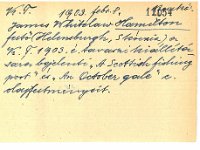 K. T. 1903. febr. 8.
11034
James Whitelaw Hamilton
festő (Helensburgh, Skócia) a
K. T. 1903. i tavaszi kiállítá-
sára bejelenti „A Scottish fishing
port" és „An October gale" c.
olajfestményeit.